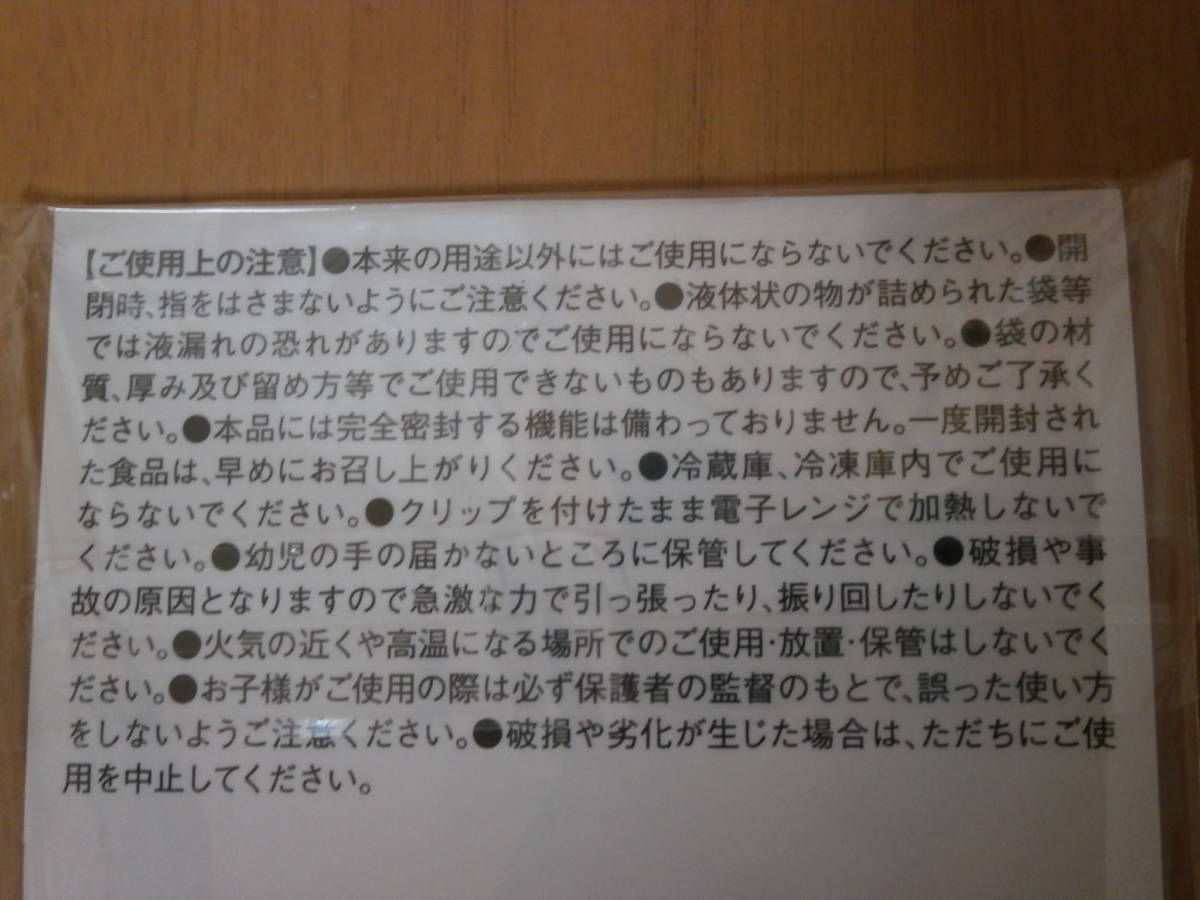 【ご使用上の注意】●本来の用途以外にはご使用にならないでください。●開
閉時、指をはさまないようにご注意ください。●液体状の物が詰められた袋等
では液漏れの恐れがありますのでご使用にならないでください。●袋の材
質、厚み及び留め方等でご使用できないものもありますので、予めご了承く
ださい。●本品には完全密封する機能は備わっておりません。一度開封され
た食品は、早めにお召し上がりください。●冷蔵庫、冷凍庫内でご使用に
ならないでください。●クリップを付けたまま電子レンジで加熱しないで
ください。●幼児の手の届かないところに保管してください。●破損や事
故の原因となりますので急激な力で引っ張ったり、振り回したりしないでく
ださい。●火気の近くや高温になる場所でのご使用・放置・保管はしないでく
ださい。●お子様がご使用の際は必ず保護者の監督のもとで、誤った使い方
をしないようご注意ください。●破損や劣化が生じた場合は、ただちにご使
用を中止してください。